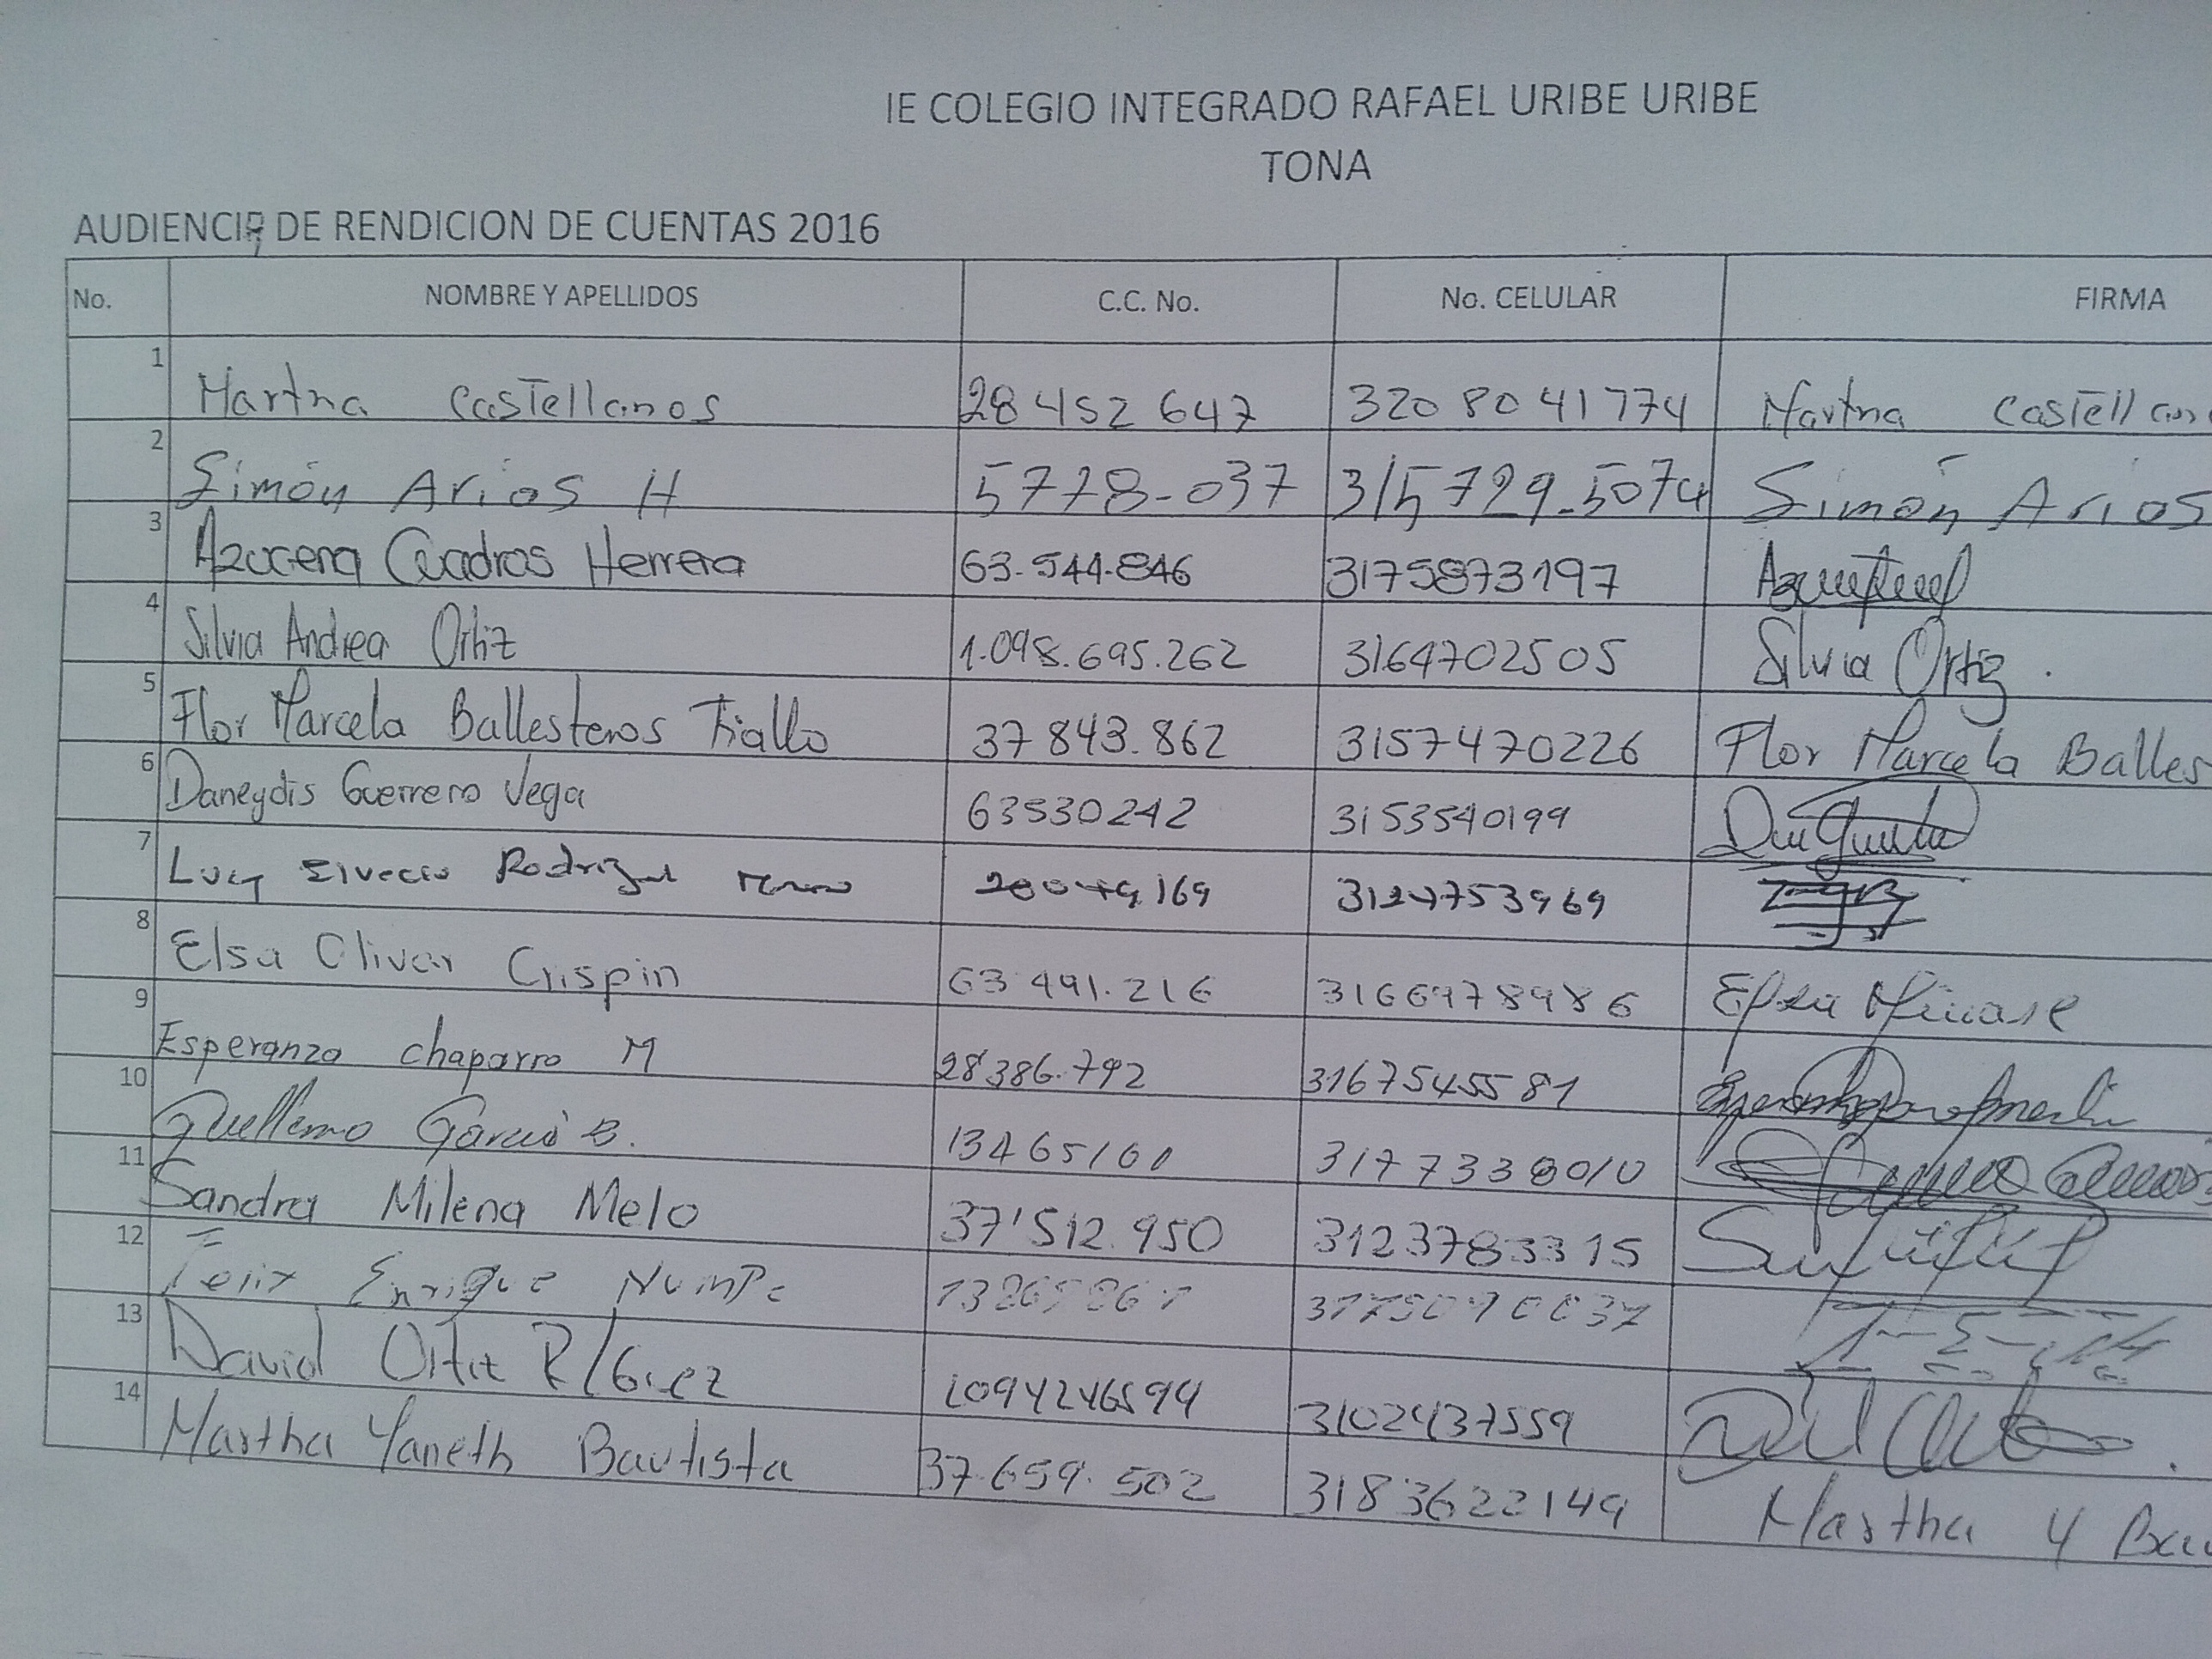 IE COLEGIO INTEGRADO RAFAEL URIBE URIBE
TONA
AUDIENCIA DE RENDICION DE CUENTAS 2016
No. NOMBRE Y APELLIDOS C.C. No. No. CELULAR FIRMA
1 Martha Castellanos 28 452 647 320 80 41774 Martha Castellan
2 Simón Arias H 5778-037 315 729-5074 Simón Arias
3 Azucena Cuadros Herrera 63.544.846 3175873197
4 Silvia Andrea Ortiz 1.098.695.262 3164702505 Silvia Ortiz.
5 Flor Marcela Ballesteros Fiallo 37 843.862 3157470226 Flor Marcela Balles
6 Daneydis Guerrero Vega 63530242 3153540199
7 Lucy 3124753969
8 Elsa Olivar Crispin 63 491.216 3166978986 Elsa
9 Esperanza chaparro M 28386.792 3167545581
10 Guillermo García B. 13465160 3177338010
11 Sandra Milena Melo 37'512.950 3123783315
12 Felix Enrique
13 David Ortiz R/Guez 1094246594 3102437559
14 Martha Yaneth Bautista 37.659.502 3183622149 Martha Y Bau